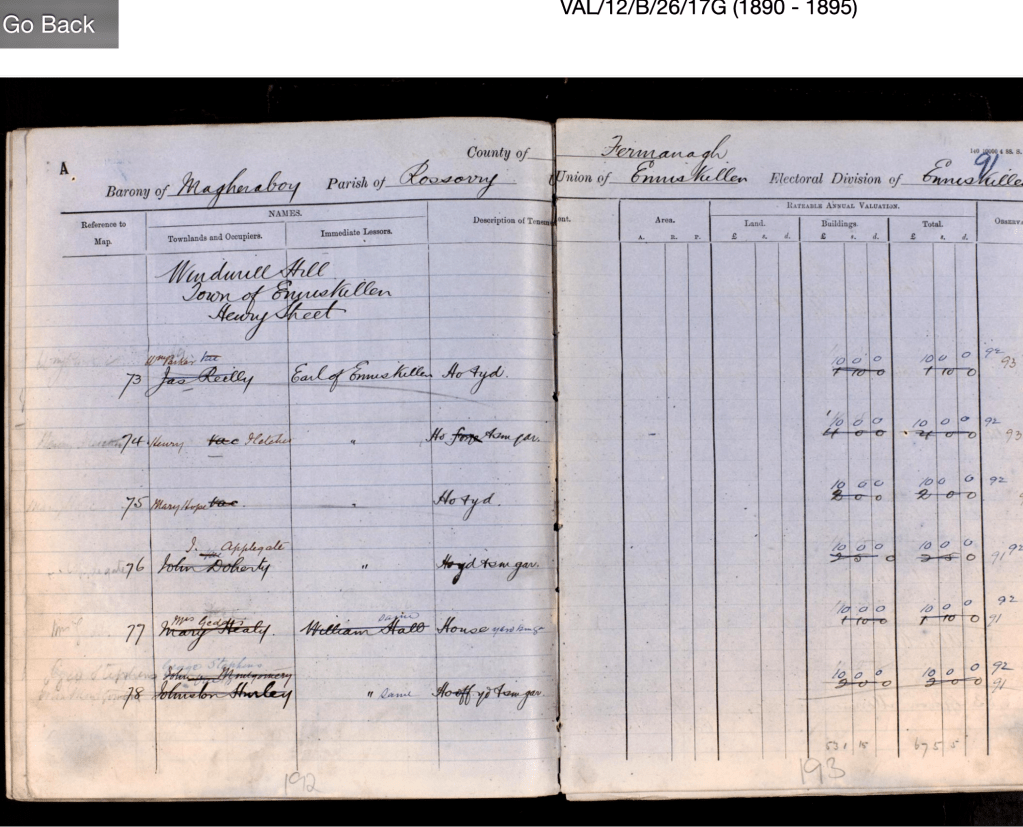 Go Back
VAL/12/B/26/17G (1890 - 1895)
A
County of Fermanagh
91
Barony of Magheraboy Parish of Rossorry Union of Enniskillen Electoral Division of Enniskille
Reference to Map.
NAMES.
Townlands and Occupiers.
Immediate Lessors.
Description of Tenem
ent.
Area.
A. R. P.
RATEABLE ANNUAL VALUATION.
Land.
£ s. d.
Buildings.
£ s. d.
Total.
£ s. d.
Observa
Windmill Hill
Town of Enniskillen
Henry Street
Wm vac
10 0 0 10 0 0 92
73 Jas Reilly Earl of Enniskillen Ho & yd. 1 10 0 1 10 0 93
10 0 0 10 0 0 92
74 Henry vac " Ho & sm gar. 4 0 0 4 0 0 93
10 0 0 10 0 0 92
75 Mary Hope vac. " Ho & yd. 2 0 0 2 0 0
J. Applegate 10 0 0 10 0 0 92
76 John Doherty " Ho yd & sm gar. 2 5 0 2 5 0 91
Mrs same 10 0 0 10 0 0 92
77 Mary Healy. William Hall House 1 10 0 1 10 0 91
George Stephens
Montgomery 10 0 0 10 0 0 92
78 Johnston Hurley " same Ho off yd & sm gar. 2 0 0 2 0 0 91
192
193